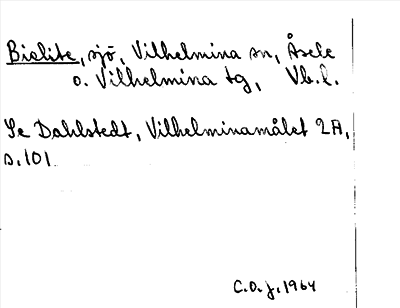 Bielite, sjö, Vilhelmina sn, Åsele
o. Vilhelmina tg, Vb.l.
Se Dahlstedt, Vilhelminamålet 2A,
s.101
C.O.J. 1964